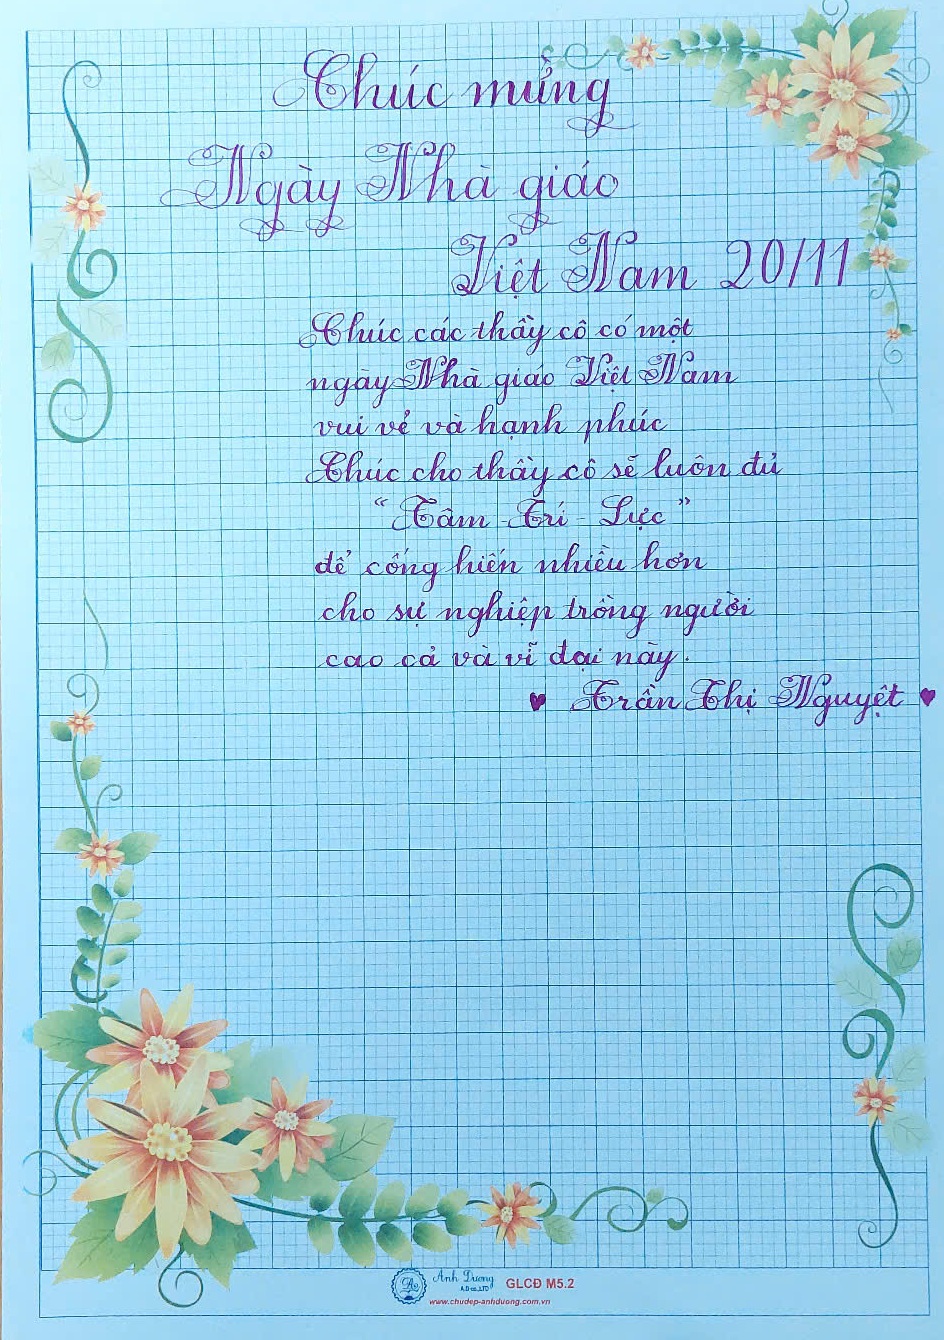 Chúc mừng
Ngày Nhà giáo
Việt Nam 20/11
Chúc các thầy cô có một
ngày Nhà giáo Việt Nam
vui vẻ và hạnh phúc
Chúc cho thầy cô sẽ luôn đủ
“Tâm - Trí - Lực”
để cống hiến nhiều hơn
cho sự nghiệp trồng người
cao cả và vĩ đại này.
♥ Trần Thị Nguyệt ♥
Ánh Dương GLCĐ M5.2
A.D co.,LTD
www.chudep-anhduong.com.vn